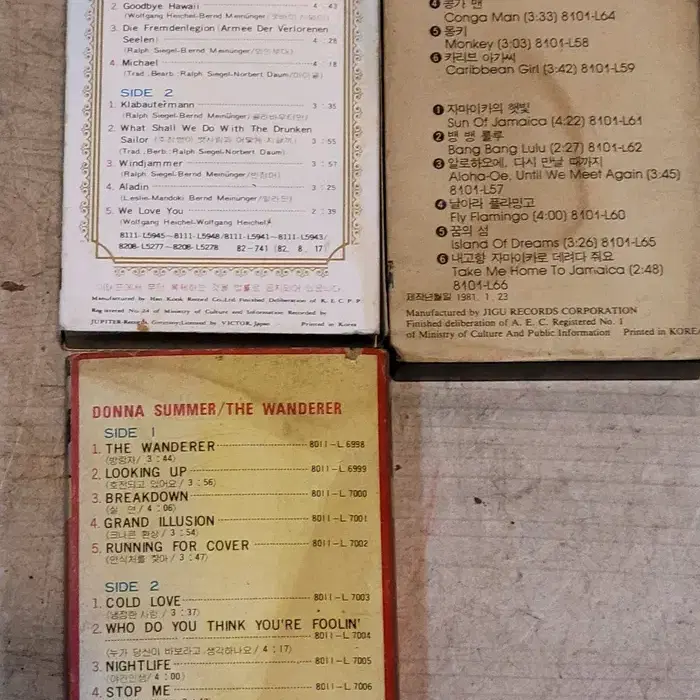 2. Goodbye Hawaii 4 : 43
(Wolfgang Heichel-Bernd Meinünger/
3. Die Fremdenlegion (Armee Der Verlorenen
Seelen) 4 : 28
(Ralph Siegel-Bernd Meinünger/
4. Michael 4 : 18
(Trad. Bearb.: Ralph Siegel-Norbert Daum/마이클)
SIDE 2
1. Klabautermann 3 : 35
(Ralph Siegel-Bernd Meinünger/클라바우터만)
2. What Shall We Do With The Drunken
Sailor 3 : 55
(Trad. Bearb.: Ralph Siegel-Norbert Daum)
3. Windjammer 3 : 57
(Ralph Siegel-Bernd Meinünger/
4. Aladin 3 : 25
(Leslie-Mandoki Bernd Meinünger/알라딘)
5. We Love You 2 : 39
(Wolfgang Heichel-Wolfgang Heichel)
8111-L5945~8111-L5948/8111-L5941~8111-L5943/
8208-L5277~8208-L5278 82-741 (82. 8. 17)
Manufactured by Han Kook Record Co.,Ltd. Finished Deliberation of K. E. C. P. P.
Registered No. 24 of Ministry of Culture and Information Recorded by
JUPITER-Records, Germany:Licensed by VICTOR, Japan Printed in Korea
❹ 콩가 맨
Conga Man (3:33) 8101-L64
❺ 몽키
Monkey (3:03) 8101-L58
❻ 카리브 아가씨
Caribbean Girl (3:42) 8101-L59
❶ 자마이카의 햇빛
Sun Of Jamaica (4:22) 8101-L61
❷ 뱅 뱅 룰루
Bang Bang Lulu (2:27) 8101-L62
❸ 알로하오에, 다시 만날 때까지
Aloha-Oe, Until We Meet Again (3:45)
8101-L57
❹ 날아라 플라밍고
Fly Flamingo (4:00) 8101-L60
❺ 꿈의 섬
Island Of Dreams (3:26) 8101-L65
❻ 내고향 자마이카로 데려다 줘요
Take Me Home To Jamaica (2:48)
8101-L66
제작년월일 1981. 1. 23
Manufactured by JIGU RECORDS CORPORATION
Finished deliberation of A. E. C. Registered No. 1
of Ministry of Culture And Public Information Printed in KOREA
DONNA SUMMER/THE WANDERER
SIDE 1
1. THE WANDERER 8011-L 6998
(방랑자/ 3 : 44)
2. LOOKING UP 8011-L 6999
(호전되고 있어요/ 3 : 56)
3. BREAKDOWN 8011-L 7000
(실 연/ 4 : 06)
4. GRAND ILLUSION 8011-L 7001
(크나큰 환상/ 3 : 54)
5. RUNNING FOR COVER 8011-L 7002
(안식처를 찾아/ 3 : 47)
SIDE 2
1. COLD LOVE 8011-L 7003
(냉정한 사랑/ 3 : 37)
2. WHO DO YOU THINK YOU'RE FOOLIN'
8011-L 7004
(누가 당신이 바보라고 생각하나요/ 4 : 17)
3. NIGHTLIFE 8011-L 7005
(야간인생/ 4 : 00)
4. STOP ME 8011-L 7006